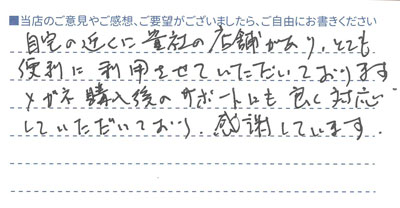 ■当店のご意見やご感想、ご要望がございましたら、ご自由にお書きください
自宅の近くに貴社の店舗があり、とても
便利に利用させていただいております
メガネ購入後のサポートにも良く対応
していただいており、感謝しています.